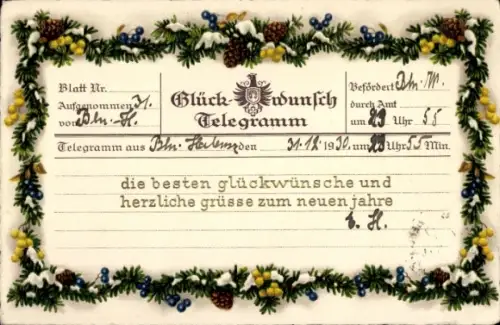 Blatt Nr.
Aufgenommen 31.
von Bln. H.
Glück- wunsch
Telegramm
Befördert Bln. W.
durch Amt
um 23 Uhr 55
Telegramm aus Bln. den 31.12.1930. um 23 Uhr 55 Min.
die besten glückwünsche und
herzliche grüsse zum neuen jahre
E. H.